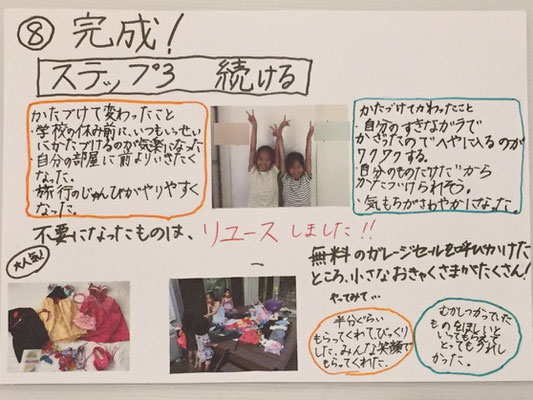 ⑧ 完成!
ステップ3 続ける
かたづけて変わったこと
・学校の休み前に、いつもいっせい
にかたづけるのが気楽になった
・自分の部屋に前よりいきたく
なった。
旅行のじゅんびがやりやすく
なった。
かたづけてかわったこと
・自分のすきながラで
かざったのでへやに入るのが
ワクワクする。
・自分のものだけだから
かたづけられそう。
・気もちがさわやかになった。
不要になったものは、リユースしました!!
大人気!
無料のガレージセルを呼びかけた
ところ、小さなおきゃくさまがたくさん!
やってみて…
半分ぐらい
もらってくれて、びっくり
した。みんな笑顔で
もらってくれた。
むかしつかっていた
ものをほしいと
いってもらえて
とってもうれし
かった。